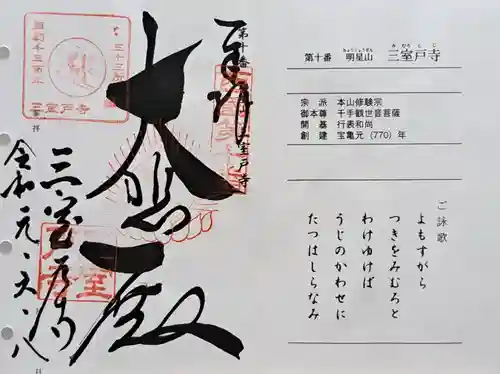 第十番 明星山 三室戸寺
みょうじょうざん
みむろとじ
宗 派 本山修験宗
御本尊 千手観世音菩薩
開 基 行表和尚
創 建 宝亀元(770)年
ご詠歌
よもすがら
つきをみむろと
わけゆけば
うじのかわせに
たつはしらなみ
第十番
三室戸寺
奉拝
大悲殿
三室戸寺
令和元・
拝
日
三室戸寺